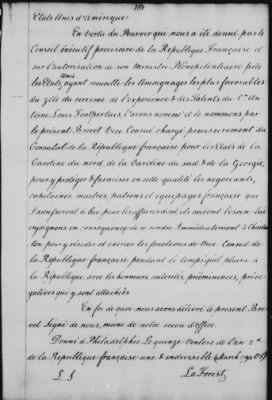 184
Etats Unis d'amérique
En vertu du Pouvoir que nous a été donné par le
Conseil Exécutif provisoire de la République Française et
sur l'autorisation de son Ministre Plénipotentiaire près
les Etats Unis, ayant recueilli les témoignages les plus favorables
du zèle du civisme de l'expérience & des Talents du Cen. An-
toine Louis Fontpertuis, l'avons nommé et le nommons par
le présent Brevet Vice Consul chargé provisoirement du
Consulat de la République française pour les Etats de la
Caroline du nord, de la Caroline du sud & de la Georgie,
pour y protéger & favoriser en cette qualité les négociants,
capitaines, maitres, patrons et equipages française que
s'adresseront à lui pour les affaires dont ils auront besoin lui
enjoignons en conséquence de se rendre immédiatement à Charles-
ton pour y résider et exercer les fonctions de Vice Consul de
la République française pendant le temps qu'il plaira à
la République, avec les honneurs, autorités, prééminences, préro-
gatives que y sont attachés
En foi de quoi nous avons délivré le présent Bre-
vet Signé de nous, mune de notre sceau d'office
Donné à Philadelphie le quinze Ventose de l'an 2d
de la République française une & indivisible
L. S. LaForest